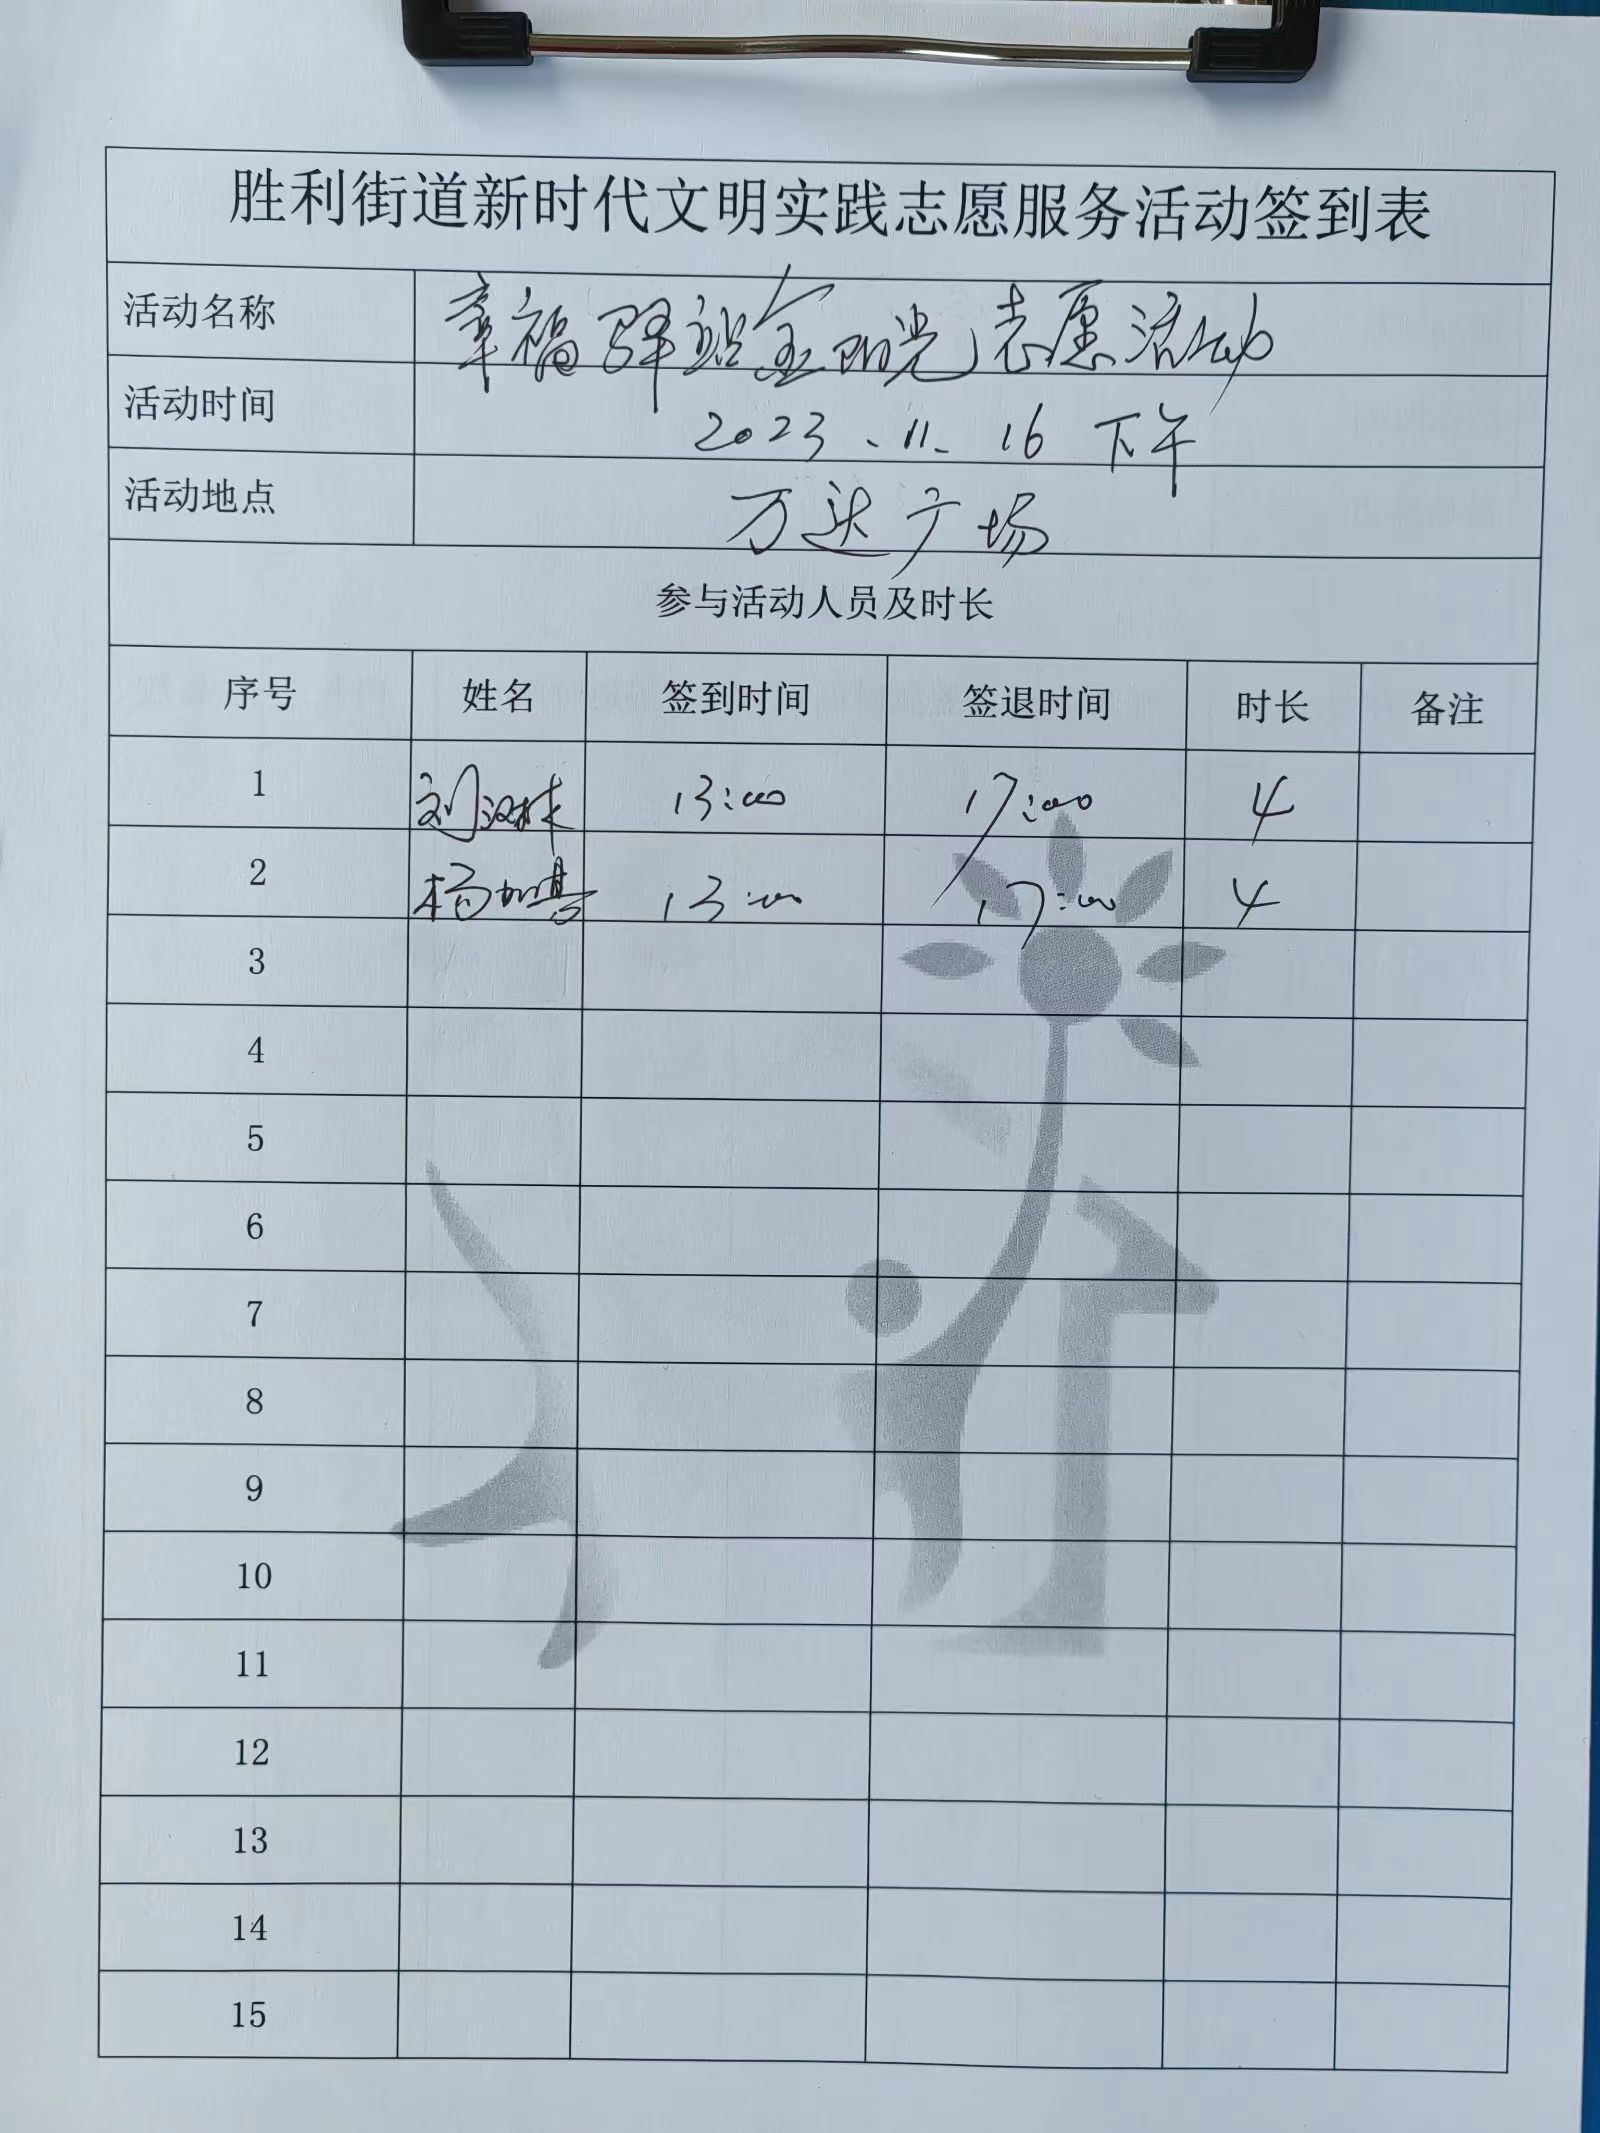 胜利街道新时代文明实践志愿服务活动签到表
活动名称 幸福驿站金阳光志愿活动
活动时间 2023.11.16 下午
活动地点 万达广场
参与活动人员及时长
序号 姓名 签到时间 签退时间 时长 备注
1 刘汉林 13:00 17:00 4
2 杨加喜 13:00 17:00 4
3
4
5
6
7
8
9
10
11
12
13
14
15